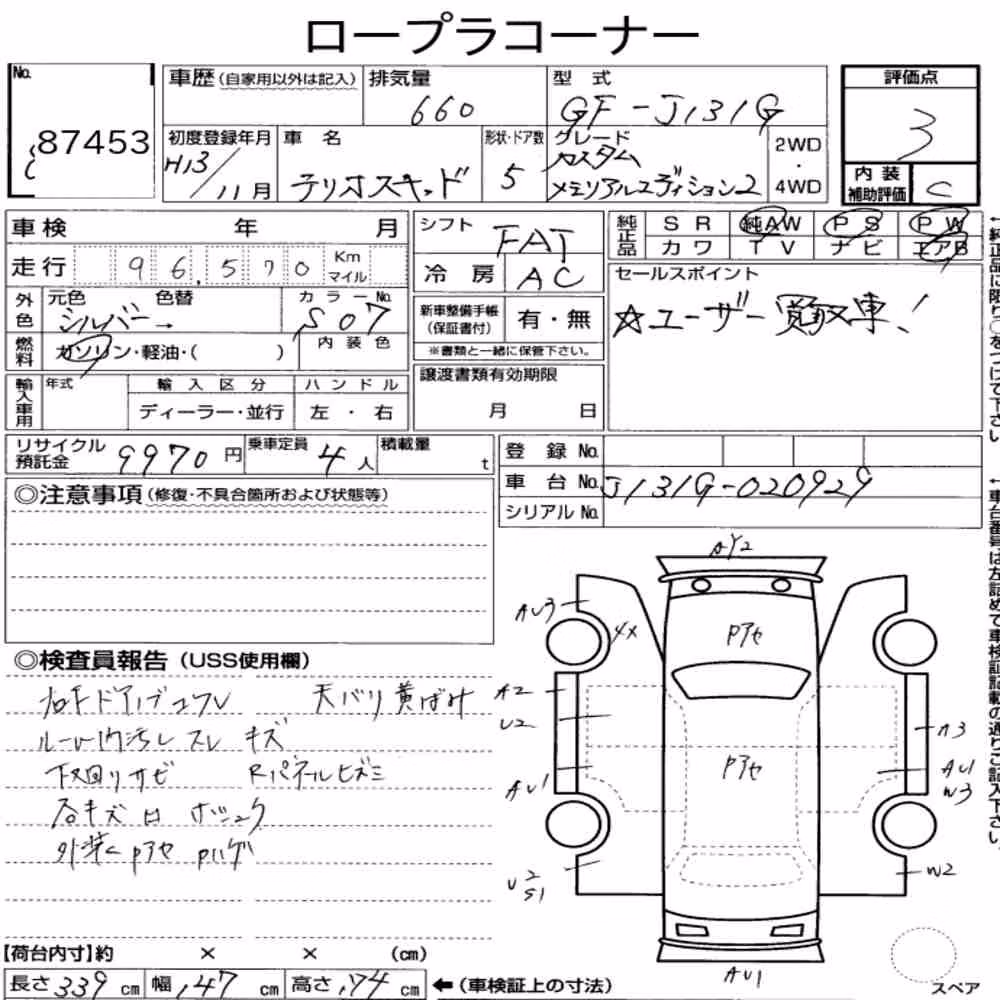 ロープラコーナー
No.
87453
車歴(自家用以外は記入)
排気量
660
型式
GF-J131G
初度登録年月
H13/11月
車名
テリオスキッド
形状・ドア数
5
グレード
カスタム
メモリアルエディション2
2WD
・
4WD
評価点
3
内装
補助評価
C
車検 年 月
走行 96,570 Km マイル
外色
元色 色替
シルバー→
カラーNo.
S07
燃料
ガソリン・軽油・( )
内装色
輸入車用
年式
輸入区分
ディーラー・並行
ハンドル
左・右
シフト
FAT
冷房
AC
新車整備手帳
(保証書付)
有・無
※書類と一緒に保管下さい。
譲渡書類有効期限
月 日
純正品
SR 純AW PS PW
カワ TV ナビ エアB
セールスポイント
☆ユーザー買取車!
←純正品に限り○をつけて下さい
リサイクル
預託金
9970円
乗車定員
4人
積載量
t
登録No.
車台No. J131G-020929
シリアルNo.
←車台番号は左詰めて車検証記載の通りご記入下さい。
◎注意事項(修復・不具合箇所および状態等)
◎検査員報告(USS使用欄)
天バリ黄ばみ
ルーム内汚レ スレ キズ
下回りサビ Rパネルヒズミ
各キズ凹
外装 Pアセ Pハゲ
AY2
AU3
4X
Pアセ
A2
U2
A3
AU1
AU1
W3
Pアセ
U2
S1
W2
AU1
スペア
【荷台内寸】約 × × (cm)
長さ339cm 幅147cm 高さ174cm ←(車検証上の寸法)